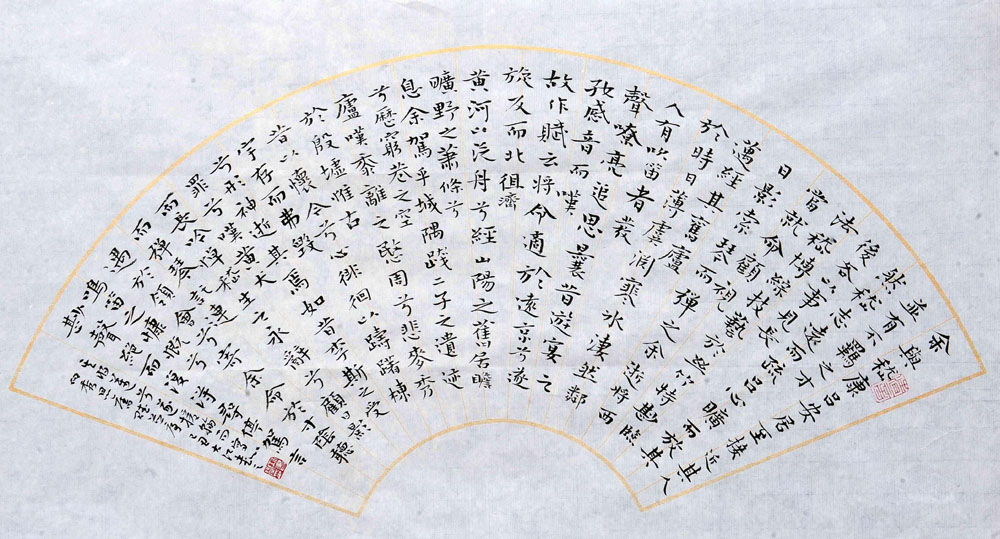 余與嵇康呂安居至接近其人
並有不羈之才
然嵇志遠而疏呂心曠而放其
後各以事見
法嵇博綜技藝於絲竹特妙臨
當就命顧視
日影索琴而彈之余逝將西
邁經其舊廬
於時日薄虞淵寒水淒然鄰
人有吹笛者發
聲嘹亮追思曩昔遊宴之
好感音而嘆
故作賦云將命適於遠京兮遂
旋反而北徂濟
黃河以汎舟兮經山陽之舊居瞻
曠野之蕭條兮
息余駕乎城隅踐二子之遺迹
兮歷窮巷之空
廬嘆黍離之愍周兮悲麥秀
於殷墟惟古
昔以懷今兮心徘徊以躊躇棟
宇存而弗毀
兮形神逝其焉如昔李斯之受
罪兮嘆黃犬
而長吟悼嵇生之永辭兮顧日影
而彈琴託運
遇於領會兮寄余命於寸陰聽
鳴笛之慷慨兮
妙聲絕而復尋停駕言
其將邁兮遂援翰而寫心